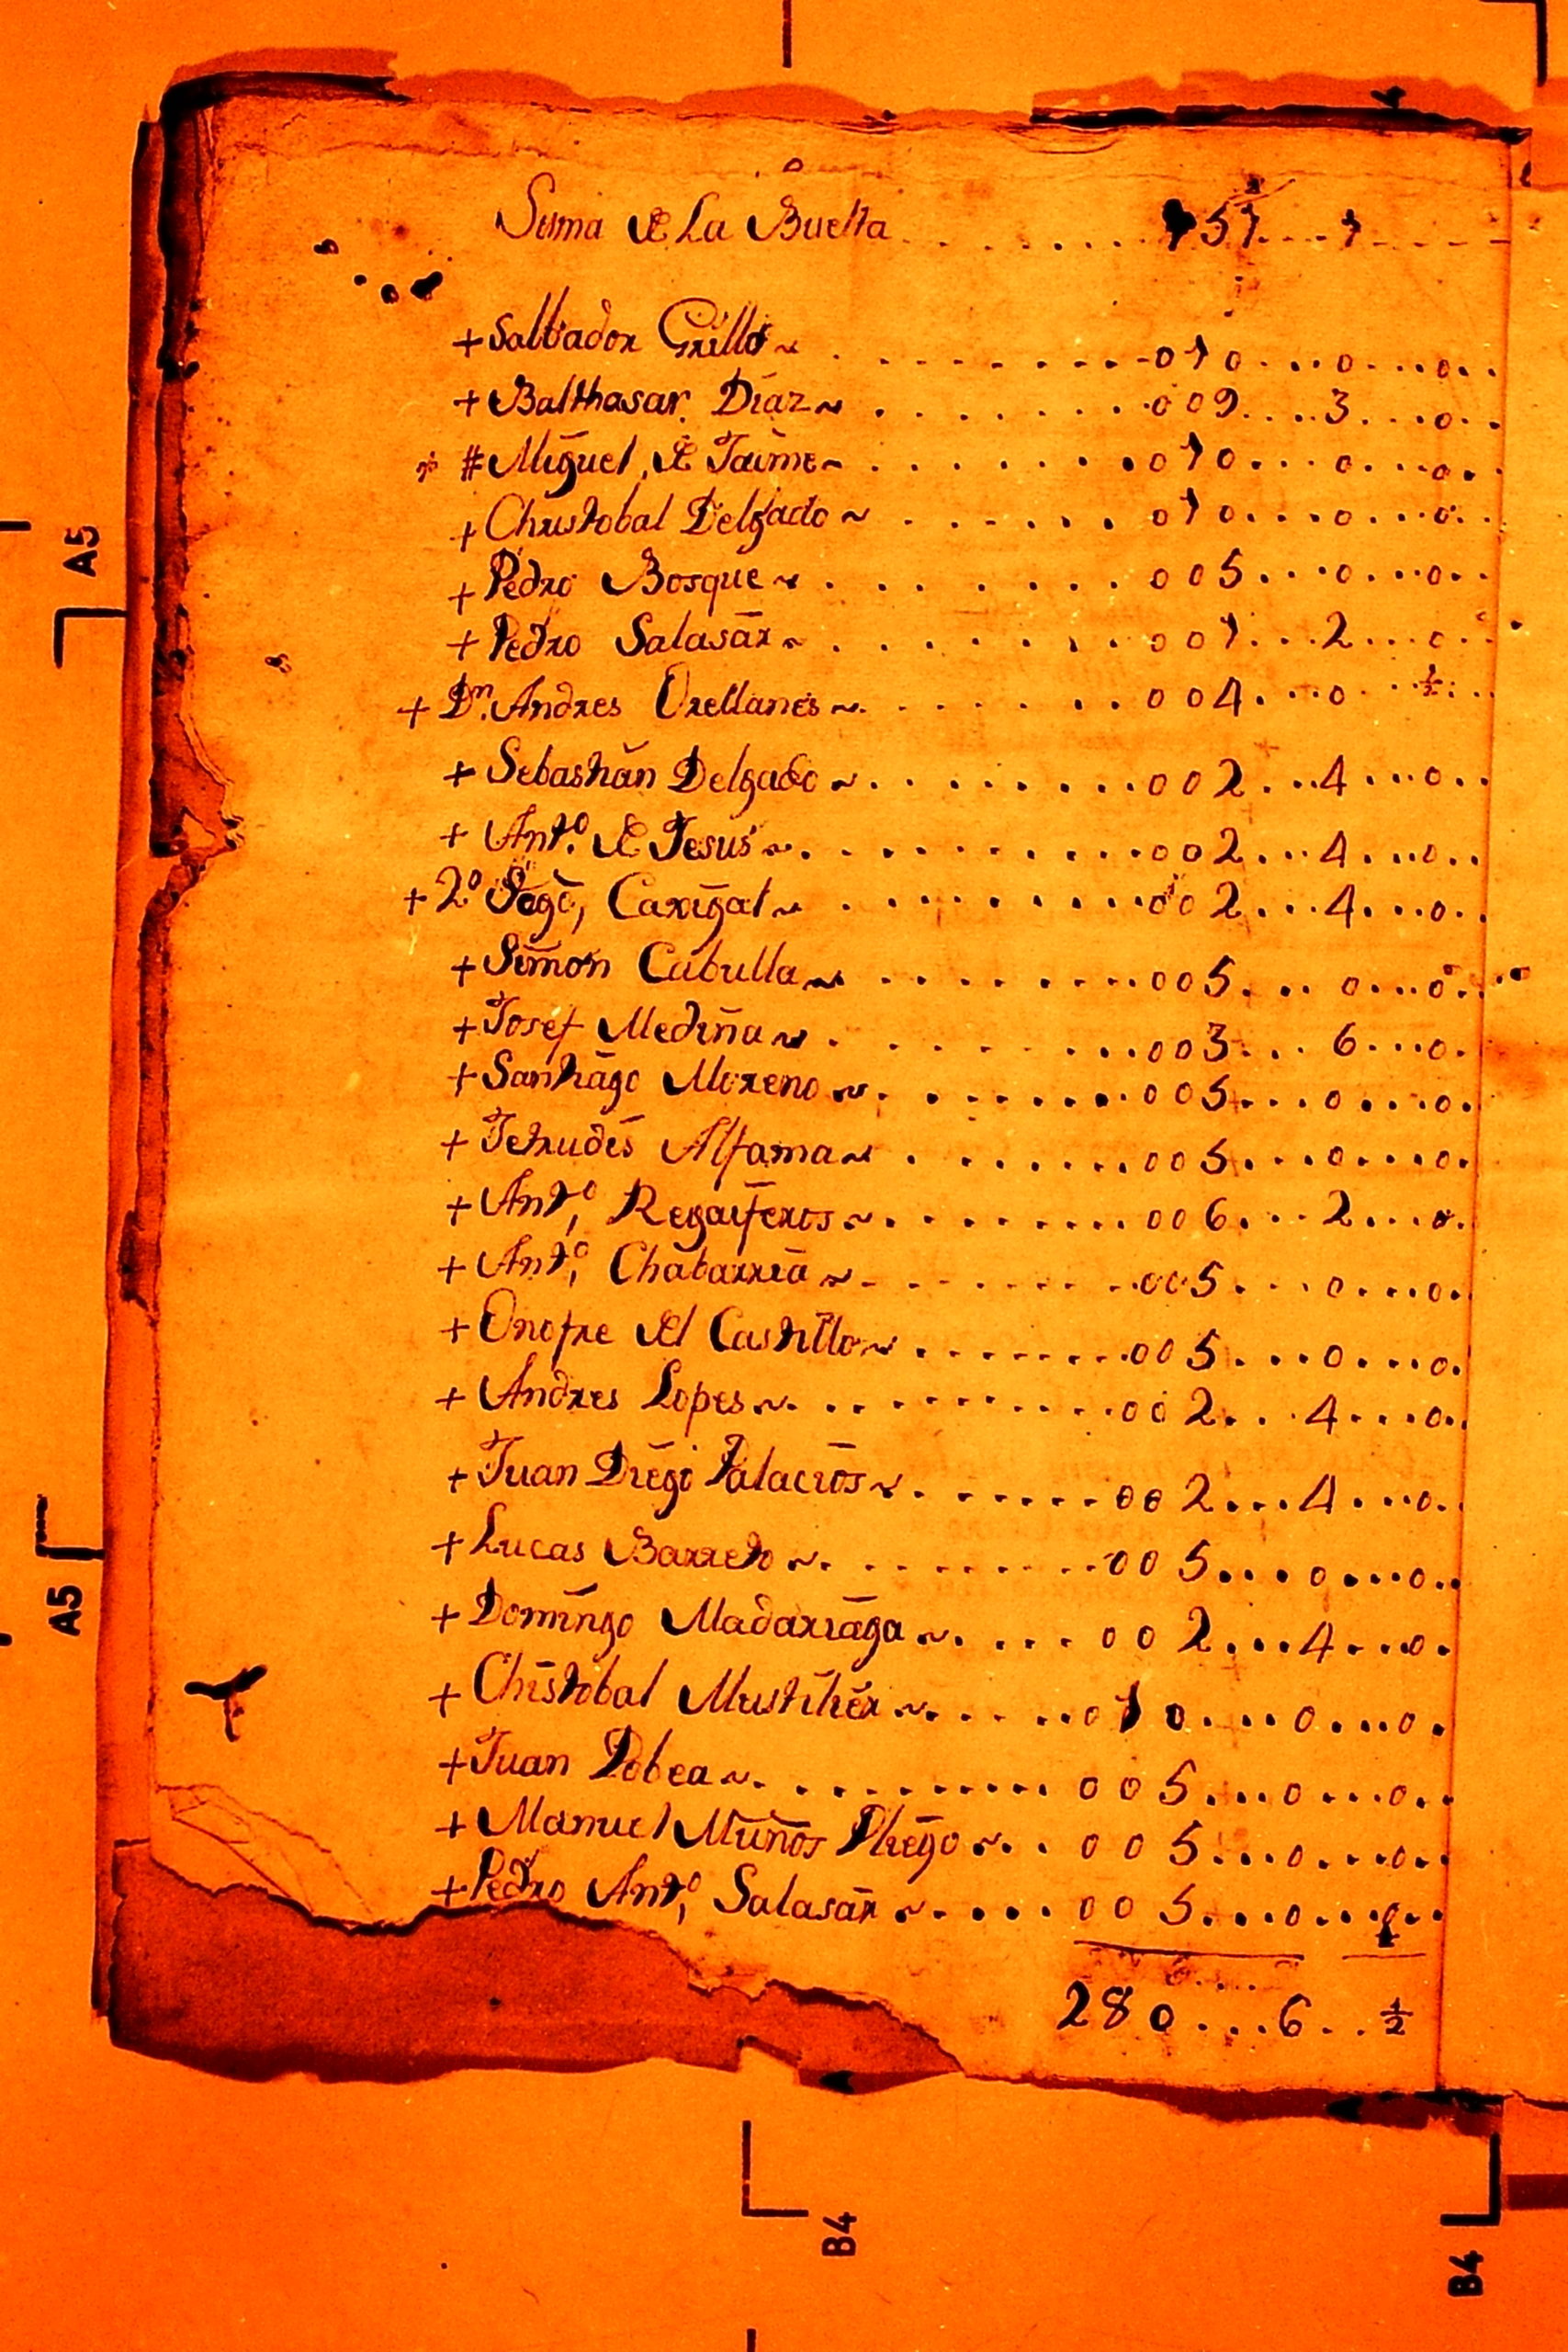 Suma de La Buelta ......... 151....1----
+ Salbador Grillo ~ . -------- 010....0....0..
+ Balthasar Diaz ~ ......... 009....3....0..
# Miguel de Jaime ~ ........ 010....0....0..
+ Christobal Delgado ~ ...... 010....0....0..
+ Pedro Bosque ~ ........ 005....0....0..
+ Pedro Salasar ~ ........ 001....2....0..
+ Dn. Andres Orellanes ~ ....... 004....0...½..
+ Sebastian Delgado ~ ......... 002...4....0..
+ Anto. de Jesus ~ .......... 002...4....0..
+ 2o Sago, Carvigal ~ .......... 002...4....0..
+ Simon Cabulla ~ ........ 005... 0....0..
+ Josef Medina ~ ........ 003... 6....0.
+ Santiago Moreno ~ ........ 005....0....0.
+ Jetrudis Alfama ~ ........ 005....0....0.
+ Anto, Regaiferos ~ ......... 006...2....0.
+ Anto, Chabarria ~ -------- 005... 0....0.
+ Onofre del Castillo ~ ........ 005....0....0.
+ Andres Lopes ~ .......... 002...4....0..
+ Juan Diego Palacios ~ ....... 002...4....0.
+ Lucas Barreto ~ ......... 005....0....0..
+ Domingo Madariaga ~ ..... 002...4....0.
+ Christobal Mustilier ~ ...... 010....0....0.
+ Juan Pobea ~ .......... 005....0....0..
+ Manuel Muños Pliego ~ .. 005....0....0..
+ Pedro Anto, Salasar ~ .... 005....0....0..
280...6..½
A5
A5
B4
B4